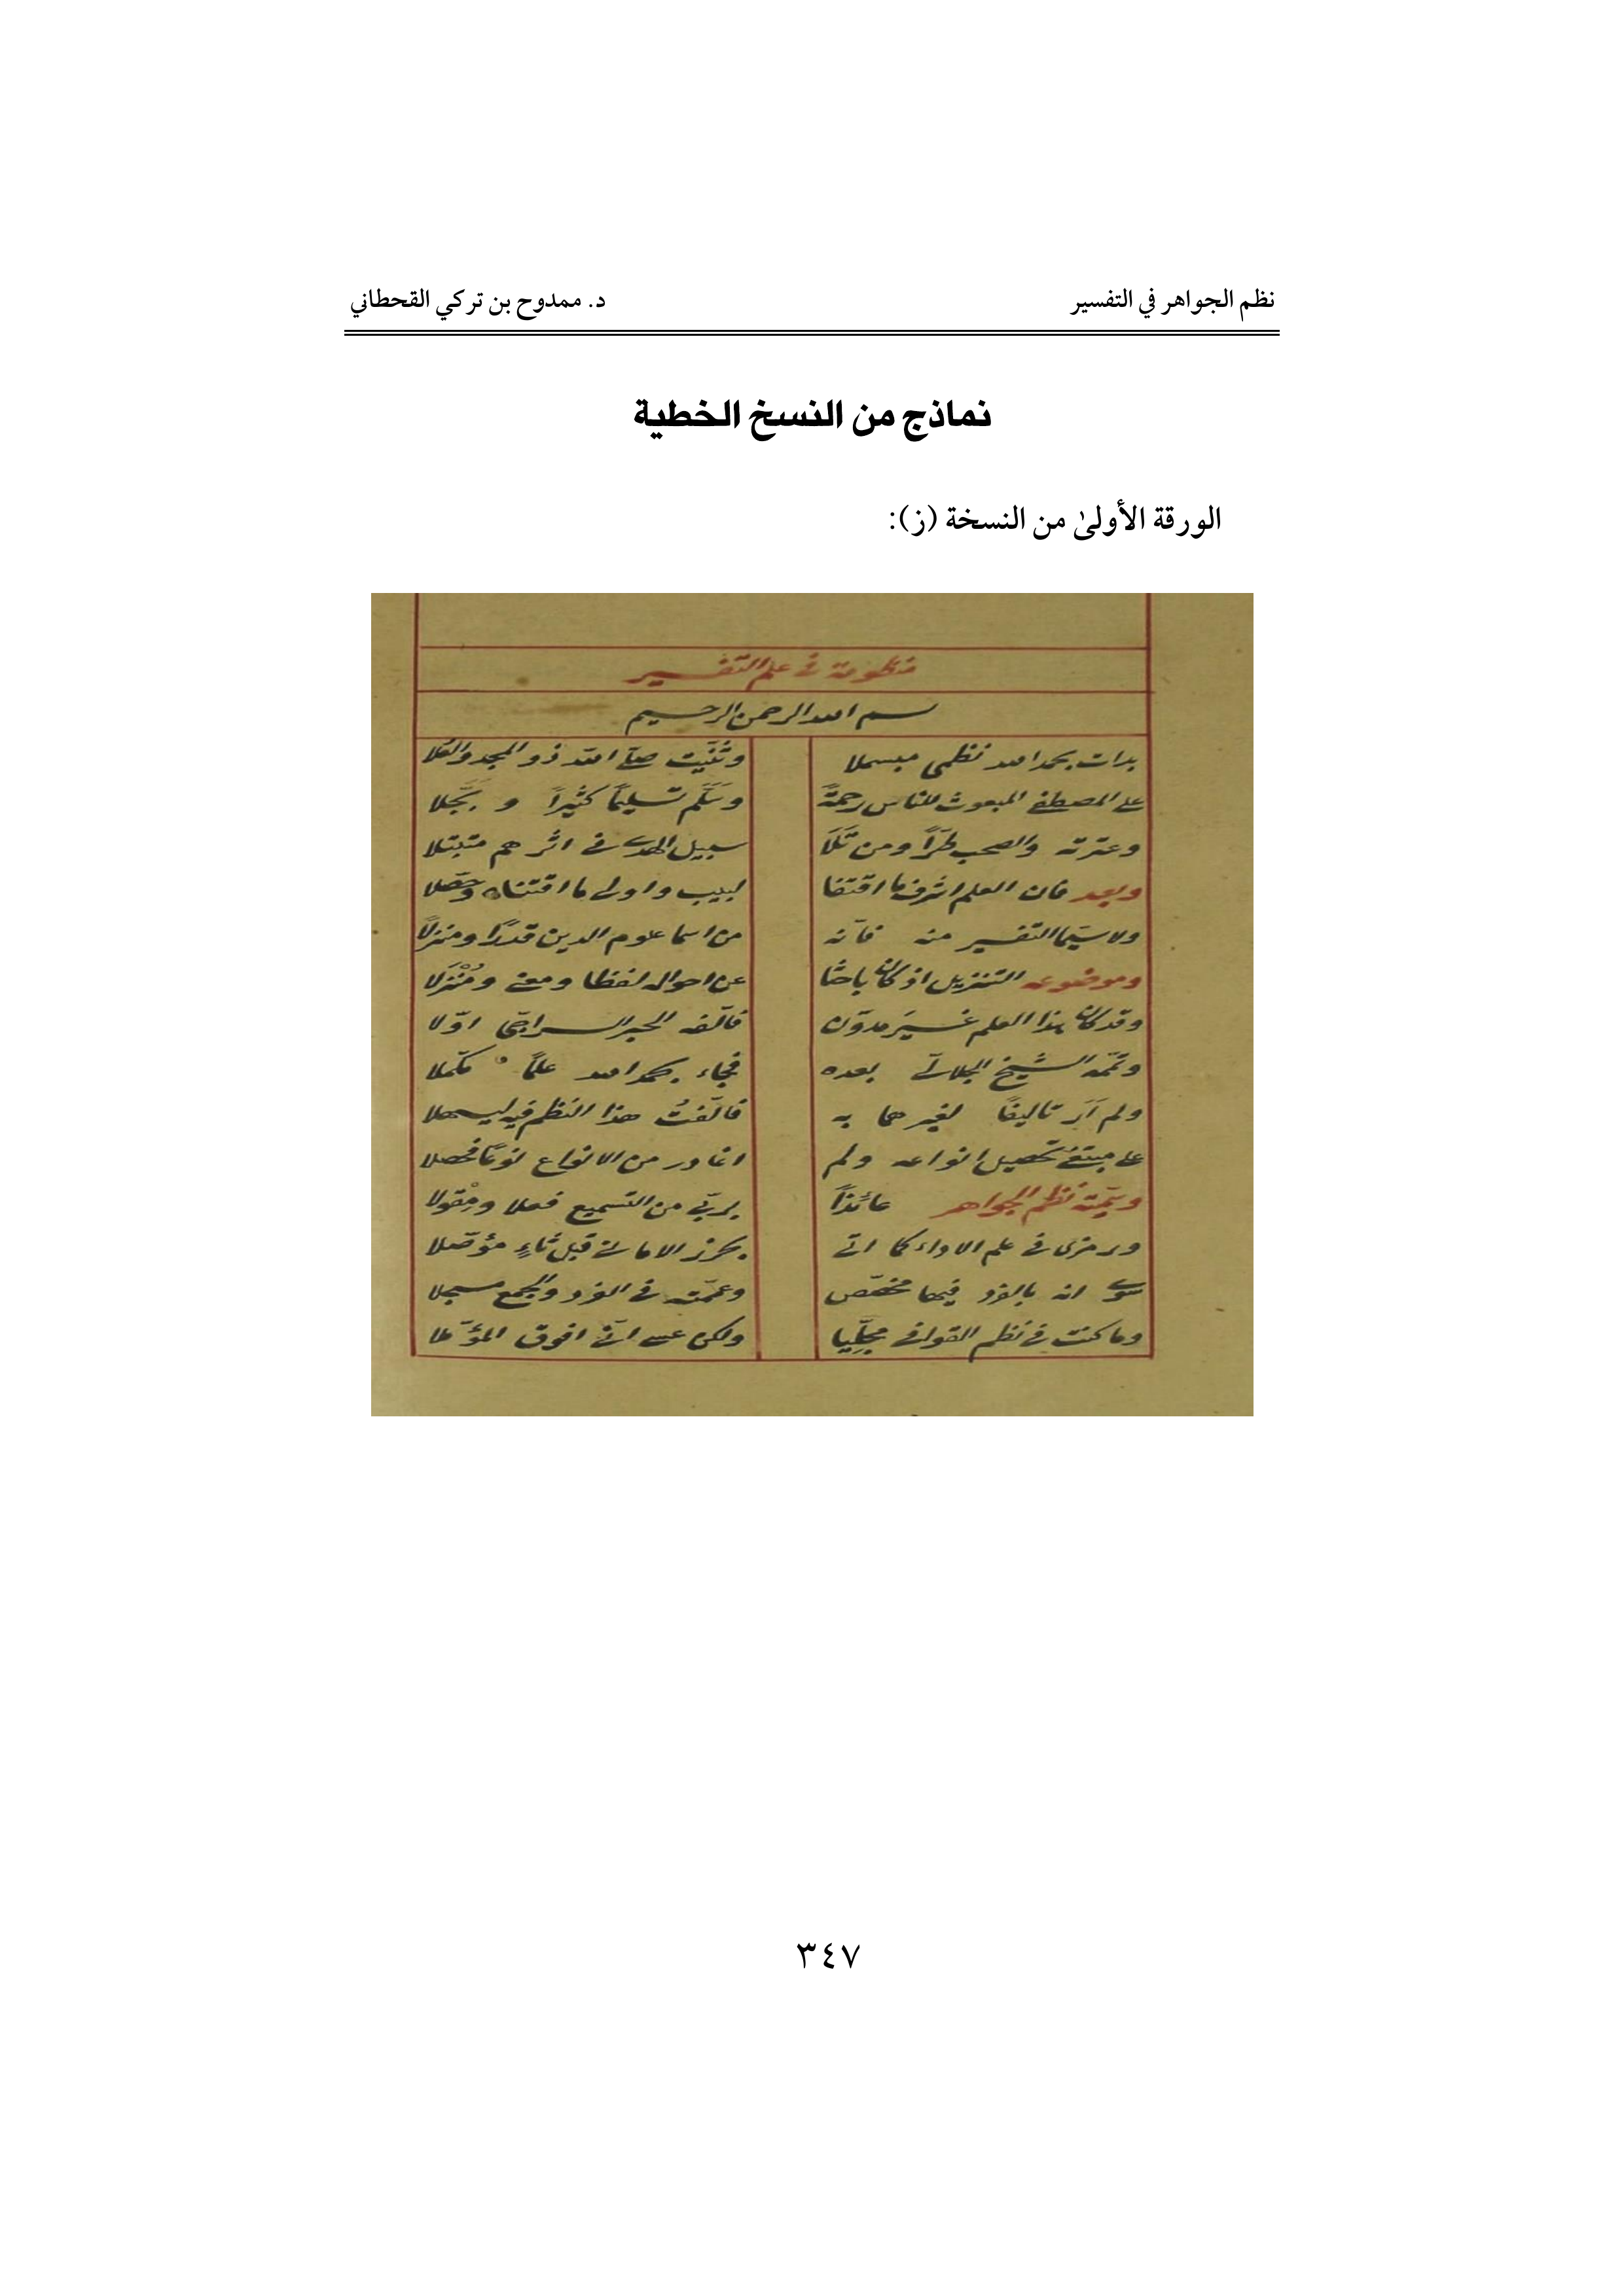 نظم الجواهر في التفسير د. ممدوح بن تركي القحطاني
نماذج من النسخ الخطية
الورقة الأولىٰ من النسخة (ز):
منظومة في علم التفسير
بسم الله الرحمن الرحيم
بدات بحمد الله نظمي مبسملا وثنّيت صلّى الله ذو المجد والعُلا
على المصطفى المبعوث للناس رحمةً وسَلَّم تسليمًا كثيرًا و بجَّلا
وعترته والصحب طرًّا ومن تَلَا سبيل الهدى في اثرهم متبتلا
وبعد فان العلم اشرف ما اقتفا لبيب واولى ما اقتناه وحصّلا
ولا سيّما التفسير منه فانّه من اسما علوم الدين قدرًا ومنزلًا
وموضوعه التنزيل اذ كان باحثا عن احواله لفظا ومعنى ومُنْزَلا
وقد كان هذا العلم غيرَ مدوّن فالّفه الحبر السراجيّ اوّلا
وتمّمه الشيخ الجلاليّ بعده فجاء بحمد الله علمًا مكمّلا
ولم اَرَ تاليفًا لغيرهما به فالّفتُ هذا النظم فيه ليسهلا
على مبتغي تحصيل انواعه ولم اغادر من الانواع نوعًا فحصلا
وسمّيته نظم الجواهر عائذًا بربّي من التسميع فعلا ومِقْولا
ورمزى في علم الاداء كما اتى بحرز الامانى قبل ثاءٍ مؤصّلا
سوى انه بالفرد فيها مخصّص وعمّمته في الفرد والجمع مسجلا
وما كنت في نظم القوافي مجلِّيا ولكن عسى انّي افوق المؤمّلا
٣٤٧